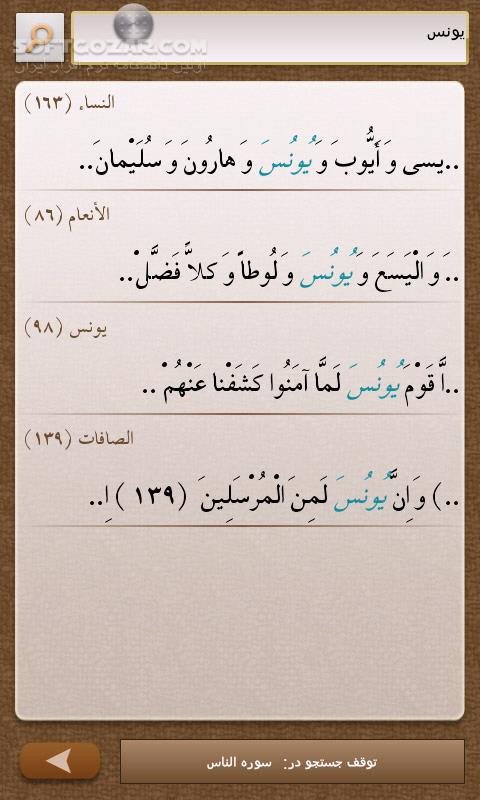 يونس
SOFTGOZAR.COM
اولین دانشنامه نرم افزار ایران
النساء (١٦٣)
..يسى وَ أَيُّوبَ وَ يُونُسَ وَ هارُونَ وَ سُلَيْمانَ..
الأنعام (٨٦)
..َ وَ الْيَسَعَ وَ يُونُسَ وَ لُوطاً وَ كلاًّ فَضَّلْ..
يونس (٩٨)
..اَّ قَوْمَ يُونُسَ لَمَّا آمَنُوا كَشَفْنا عَنْهُمْ ..
الصافات (١٣٩)
..) وَ اِنَّ يُونُسَ لَمِنَ الْمُرْسَلِينَ (١٣٩ ) اِ..
توقف جستجو در: سوره الناس